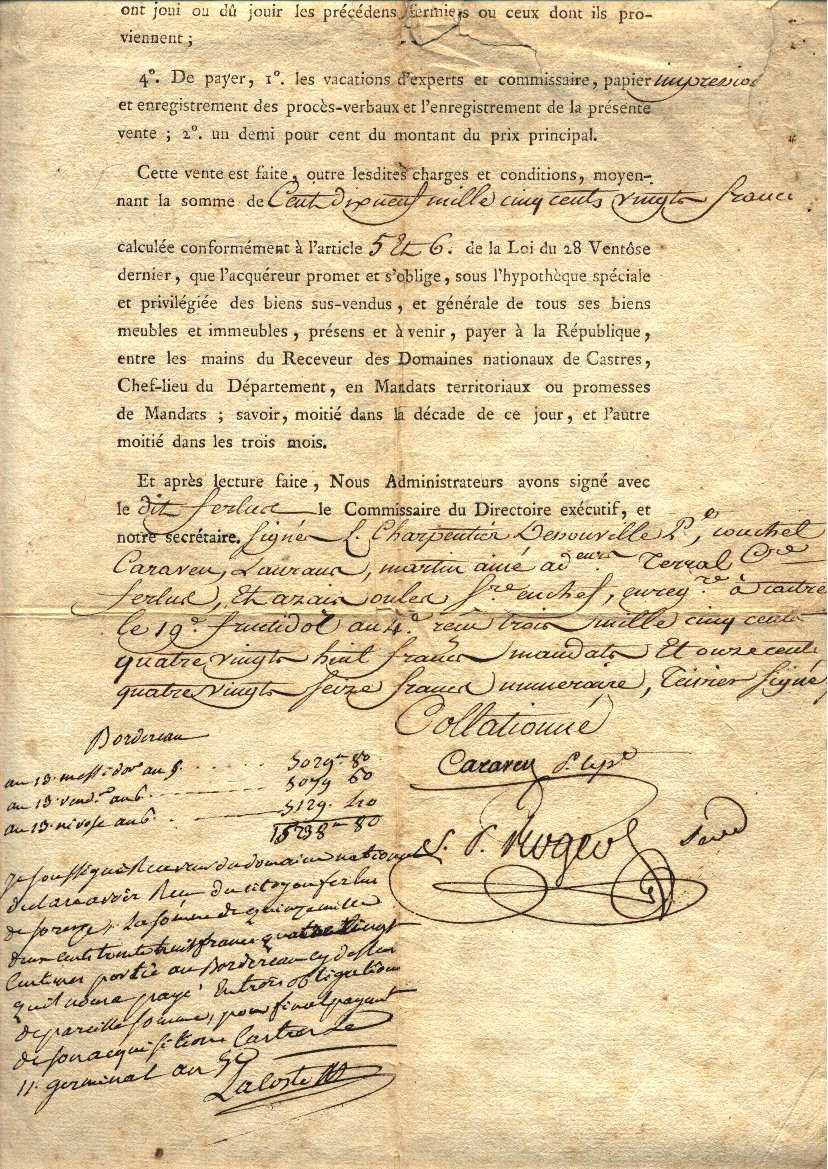 ont joui ou dû jouir les précédens fermiers ou ceux dont ils pro-
viennent ;
4°. De payer, 1°. les vacations d'experts et commissaire, papier impression
et enregistrement des procès-verbaux et l'enregistrement de la présente
vente ; 2°. un demi pour cent du montant du prix principal.
Cette vente est faite, outre lesdites charges et conditions, moyen-
nant la somme de Cent dixneuf mille cinq cents vingts francs
calculée conformément à l'article 5 et 6. de la Loi du 28 Ventôse
dernier, que l'acquéreur promet et s'oblige, sous l'hypothèque spéciale
et privilégiée des biens sus-vendus, et générale de tous ses biens
meubles et immeubles, présens et à venir, payer à la République,
entre les mains du Receveur des Domaines nationaux de Castres,
Chef-lieu du Département, en Mandats territoriaux ou promesses
de Mandats ; savoir, moitié dans la décade de ce jour, et l'autre
moitié dans les trois mois.
Et après lecture faite, Nous Administrateurs avons signé avec
le dit ferlus le Commissaire du Directoire exécutif, et
notre secrétaire. Signés L. Charpentier Desouville Pt, couchet
Caraven, Laurans, martin ainé adeurs Terral Cre
ferlus, Et azais oules Sre en chef, enregtré à castre
le 19e fructidor an 4e. reçu trois mille cinq cents
quatre vingts huit francs mandats Et onze cents
quatre vingts seize francs numeraire, Teisier Signé
Collationné
Bordereau
Caraven
au 13 messidor an 5. 5029 80
au 13 vendre an 6. 5079 60
au 13 nivose an 6 5129. 40
15238 80
Rogeo
Je soussigné Receveur du domaine national
declare avoir Reçu du citoyen ferlus
de soreze, La somme de quinze mille
deux cents trente huit francs quatre vingt
Centimes portée au Bordereau cy dessus
quil nous a payé En trois obligations
de pareille somme, pour final payant
de son acquisition Castres Le
11 germinal an 5e
Lacoste